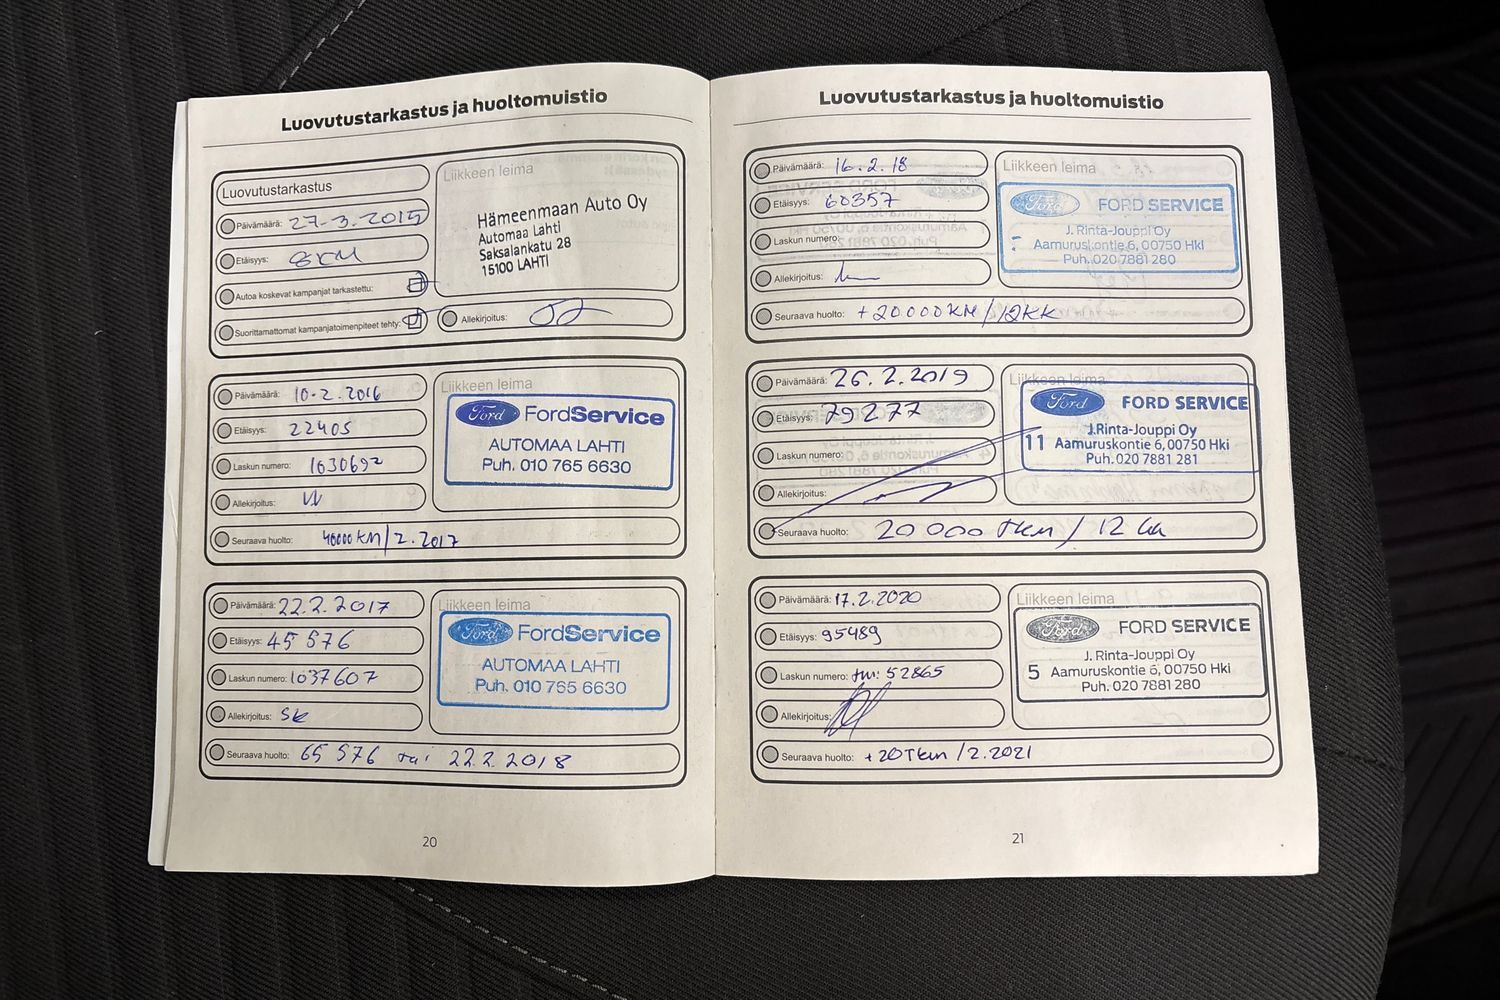 Luovutustarkastus ja huoltomuistio
Luovutustarkastus
Päivämäärä: 27.3.2015
Etäisyys: 8KM
Autoa koskevat kampanjat tarkastettu:
Suorittamattomat kampanjatoimenpiteet tehty:
Liikkeen leima
Hämeenmaan Auto Oy
Automaa Lahti
Saksalankatu 28
15100 LAHTI
Allekirjoitus:
Päivämäärä: 10.2.2016
Etäisyys: 22405
Laskun numero: 1030692
Allekirjoitus:
Liikkeen leima
Ford FordService
AUTOMAA LAHTI
Puh. 010 765 6630
Seuraava huolto: 40000 KM/2.2017
Päivämäärä: 22.2.2017
Etäisyys: 45 576
Laskun numero: 1037607
Allekirjoitus: SK
Liikkeen leima
Ford FordService
AUTOMAA LAHTI
Puh. 010 765 6630
Seuraava huolto: 65 576 tai 22.2.2018
20
Luovutustarkastus ja huoltomuistio
Päivämäärä: 16.2.18
Etäisyys: 60357
Laskun numero:
Allekirjoitus:
Liikkeen leima
Ford FORD SERVICE
J. Rinta-Jouppi Oy
Aamuruskontie 6, 00750 Hki
Puh. 020 7881 280
Seuraava huolto: +20000KM/12KK
Päivämäärä: 26.2.2019
Etäisyys: 79277
Laskun numero:
Allekirjoitus:
Liikkeen leima
Ford FORD SERVICE
J.Rinta-Jouppi Oy
11 Aamuruskontie 6, 00750 Hki
Puh. 020 7881 281
Seuraava huolto: 20 000 tkm / 12 kk
Päivämäärä: 17.2.2020
Etäisyys: 95489
Laskun numero: tm: 52865
Allekirjoitus:
Liikkeen leima
Ford FORD SERVICE
J. Rinta-Jouppi Oy
5 Aamuruskontie 6, 00750 Hki
Puh. 020 7881 280
Seuraava huolto: +20Tkm /2.2021
21